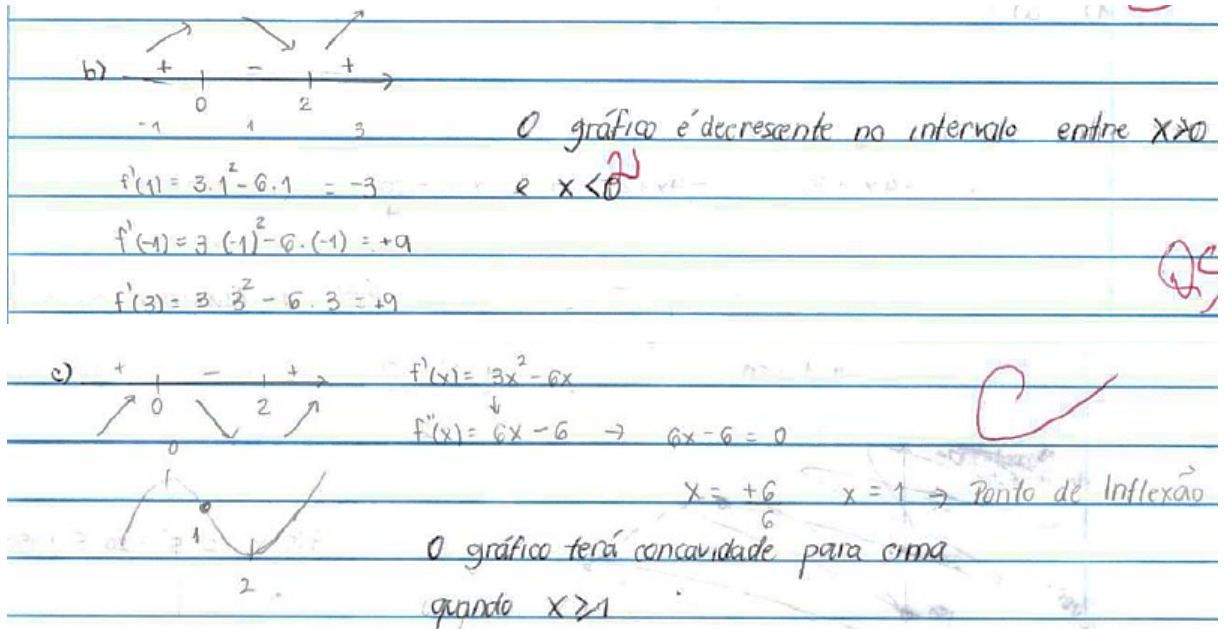 b) + - +
0 2
-1 1 3
O gráfico é decrescente no intervalo entre x>0
e x<0 2
f'(1) = 3.1² - 6.1 = -3
f'(-1) = 3.(-1)² - 6.(-1) = +9
f'(3) = 3.3² - 6.3 = +9
c) + - +
0 2
f'(x) = 3x² - 6x
f''(x) = 6x - 6 → 6x - 6 = 0
0
x = +6/6 x = 1 → Ponto de Inflexão
1
2
O gráfico terá concavidade para cima
quando x ≥ 1